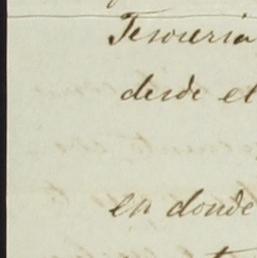 Tesoreria
desde el
en donde